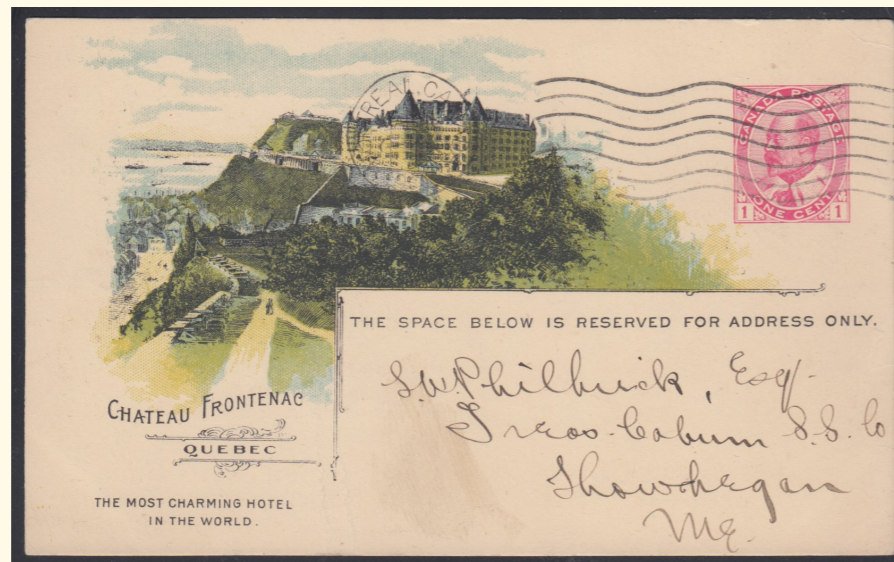 REAL, CA
CANADA POSTAGE
1 ONE CENT 1
THE SPACE BELOW IS RESERVED FOR ADDRESS ONLY.
S.W. Philbrick, Esq.
Treas. Coburn S.S. Co
Skowhegan
Me.
CHATEAU FRONTENAC
QUEBEC
THE MOST CHARMING HOTEL
IN THE WORLD.